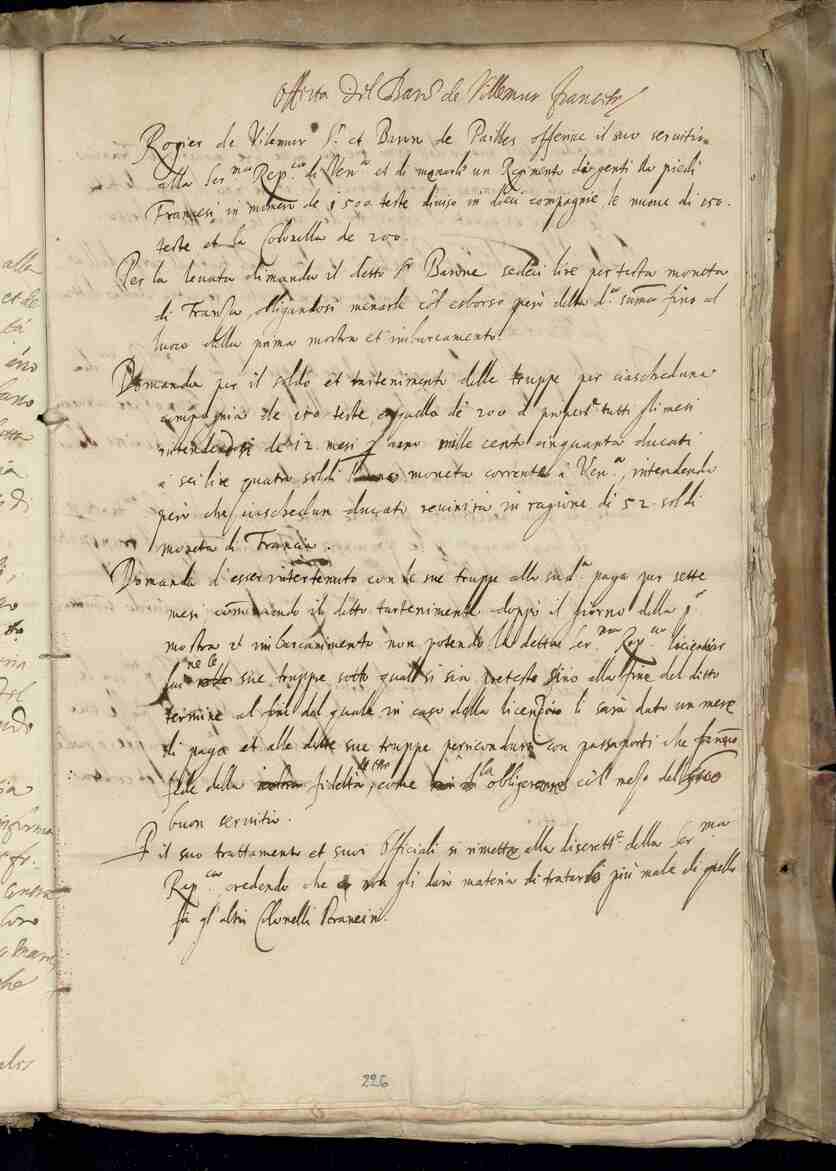 Offerta del Baron de Villemur francese
Rogier de Vilemur Sr. et Baron de Pailles offerisce il suo servitio
alla Ser.ma Rep.ca di Ven.a et di menarle un Regimento di genti da piedi
Francesi in numero de 1500 teste diviso in dieci compagnie le nuove di 150.
teste et la Colonella de 200.
Per la levata dimanda il detto Sr. Barone sedeci lire per testa moneta
di Francia, obligandosi menarle col esborso però della d.a summa fino al
luoco della prima mostra et imbarcamento.
Domanda per il soldo et tartenimento delle truppe per ciascheduna
compagnia de 150 teste, et quella de 200 tutti gli mesi
intendendosi de 12 mesi l'anno mille cento cinquanta ducati
a sei lire quatro soldi moneta corrente à Ven.a, intendendo
però che ciaschedun ducato revinirà in ragione di 52 soldi
moneta di Francia.
Domanda d'esser intertenuto con le sue truppe alla sud.a paga per sette
mesi cominciando il detto tartenimento doppò il giorno della p.a
mostra et imbarcamento non potendo la detta Ser.ma Rep.ca licientiar
lui ne le sue truppe sotto qual si sia pretesto fino alla fine del ditto
termine al fin del quale in caso della licenza li sarà dato un mese
di paga et alle dette sue truppe per ricondursi con passaporti che
fede della fidelta, come la obligeranno col mezo del
buon servitio.
P il suo trattamento et suoi Officiali si rimette alla discrett.e della Ser.ma
Rep.ca credendo che non gli darà materia di trattarlo più male di quello
fa gl'altri Colonelli Francesi.
226